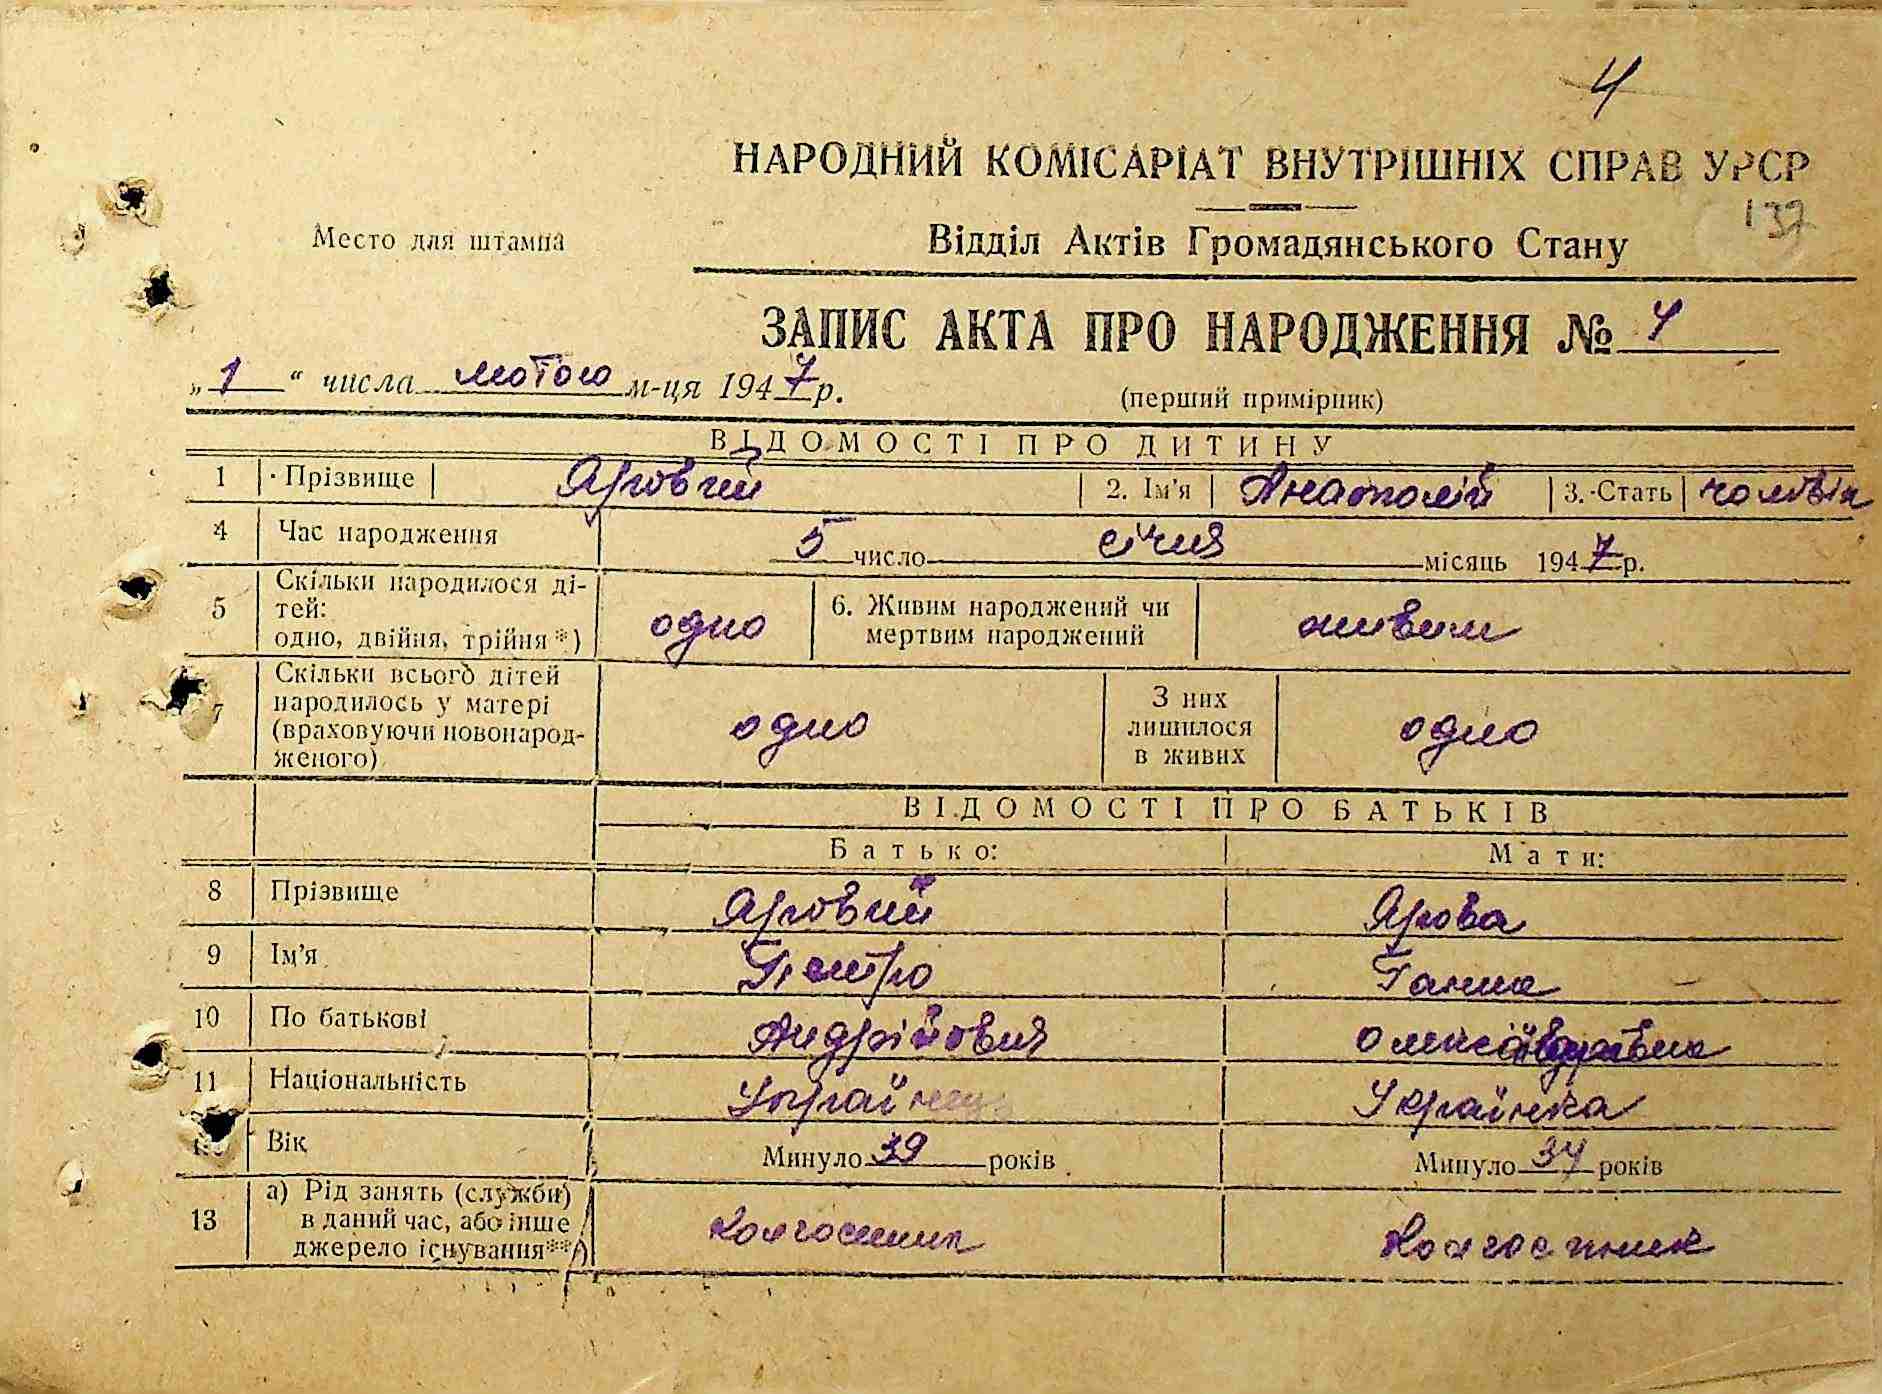 4
НАРОДНИЙ КОМІСАРІАТ ВНУТРІШНІХ СПРАВ УРСР
137
Место для штампа
Відділ Актів Громадянського Стану
ЗАПИС АКТА ПРО НАРОДЖЕННЯ № 4
„1“ числа лютого м-ця 1947 р.
(перший примірник)
ВІДОМОСТІ ПРО ДИТИНУ
1 Прізвище Яровий 2. Ім'я Анатолій 3. Стать чоловік
4 Час народження 5 число січня місяць 1947 р.
5 Скільки народилося ді-
тей:
одно, двійня, трійня*) одно
6. Живим народжений чи
мертвим народжений живим
7 Скільки всього дітей
народилось у матері
(враховуючи новонарод-
женого) одно
З них
лишилося
в живих одно
ВІДОМОСТІ ПРО БАТЬКІВ
Батько: Мати:
8 Прізвище Яровий Ярова
9 Ім'я Петро Ганна
10 По батькові Андрійович
11 Національність Українець Українка
Вік Минуло 39 років Минуло 34 років
13 а) Рід занять (служби)
в даний час, або інше
джерело існування**) Колгоспник Колгоспник